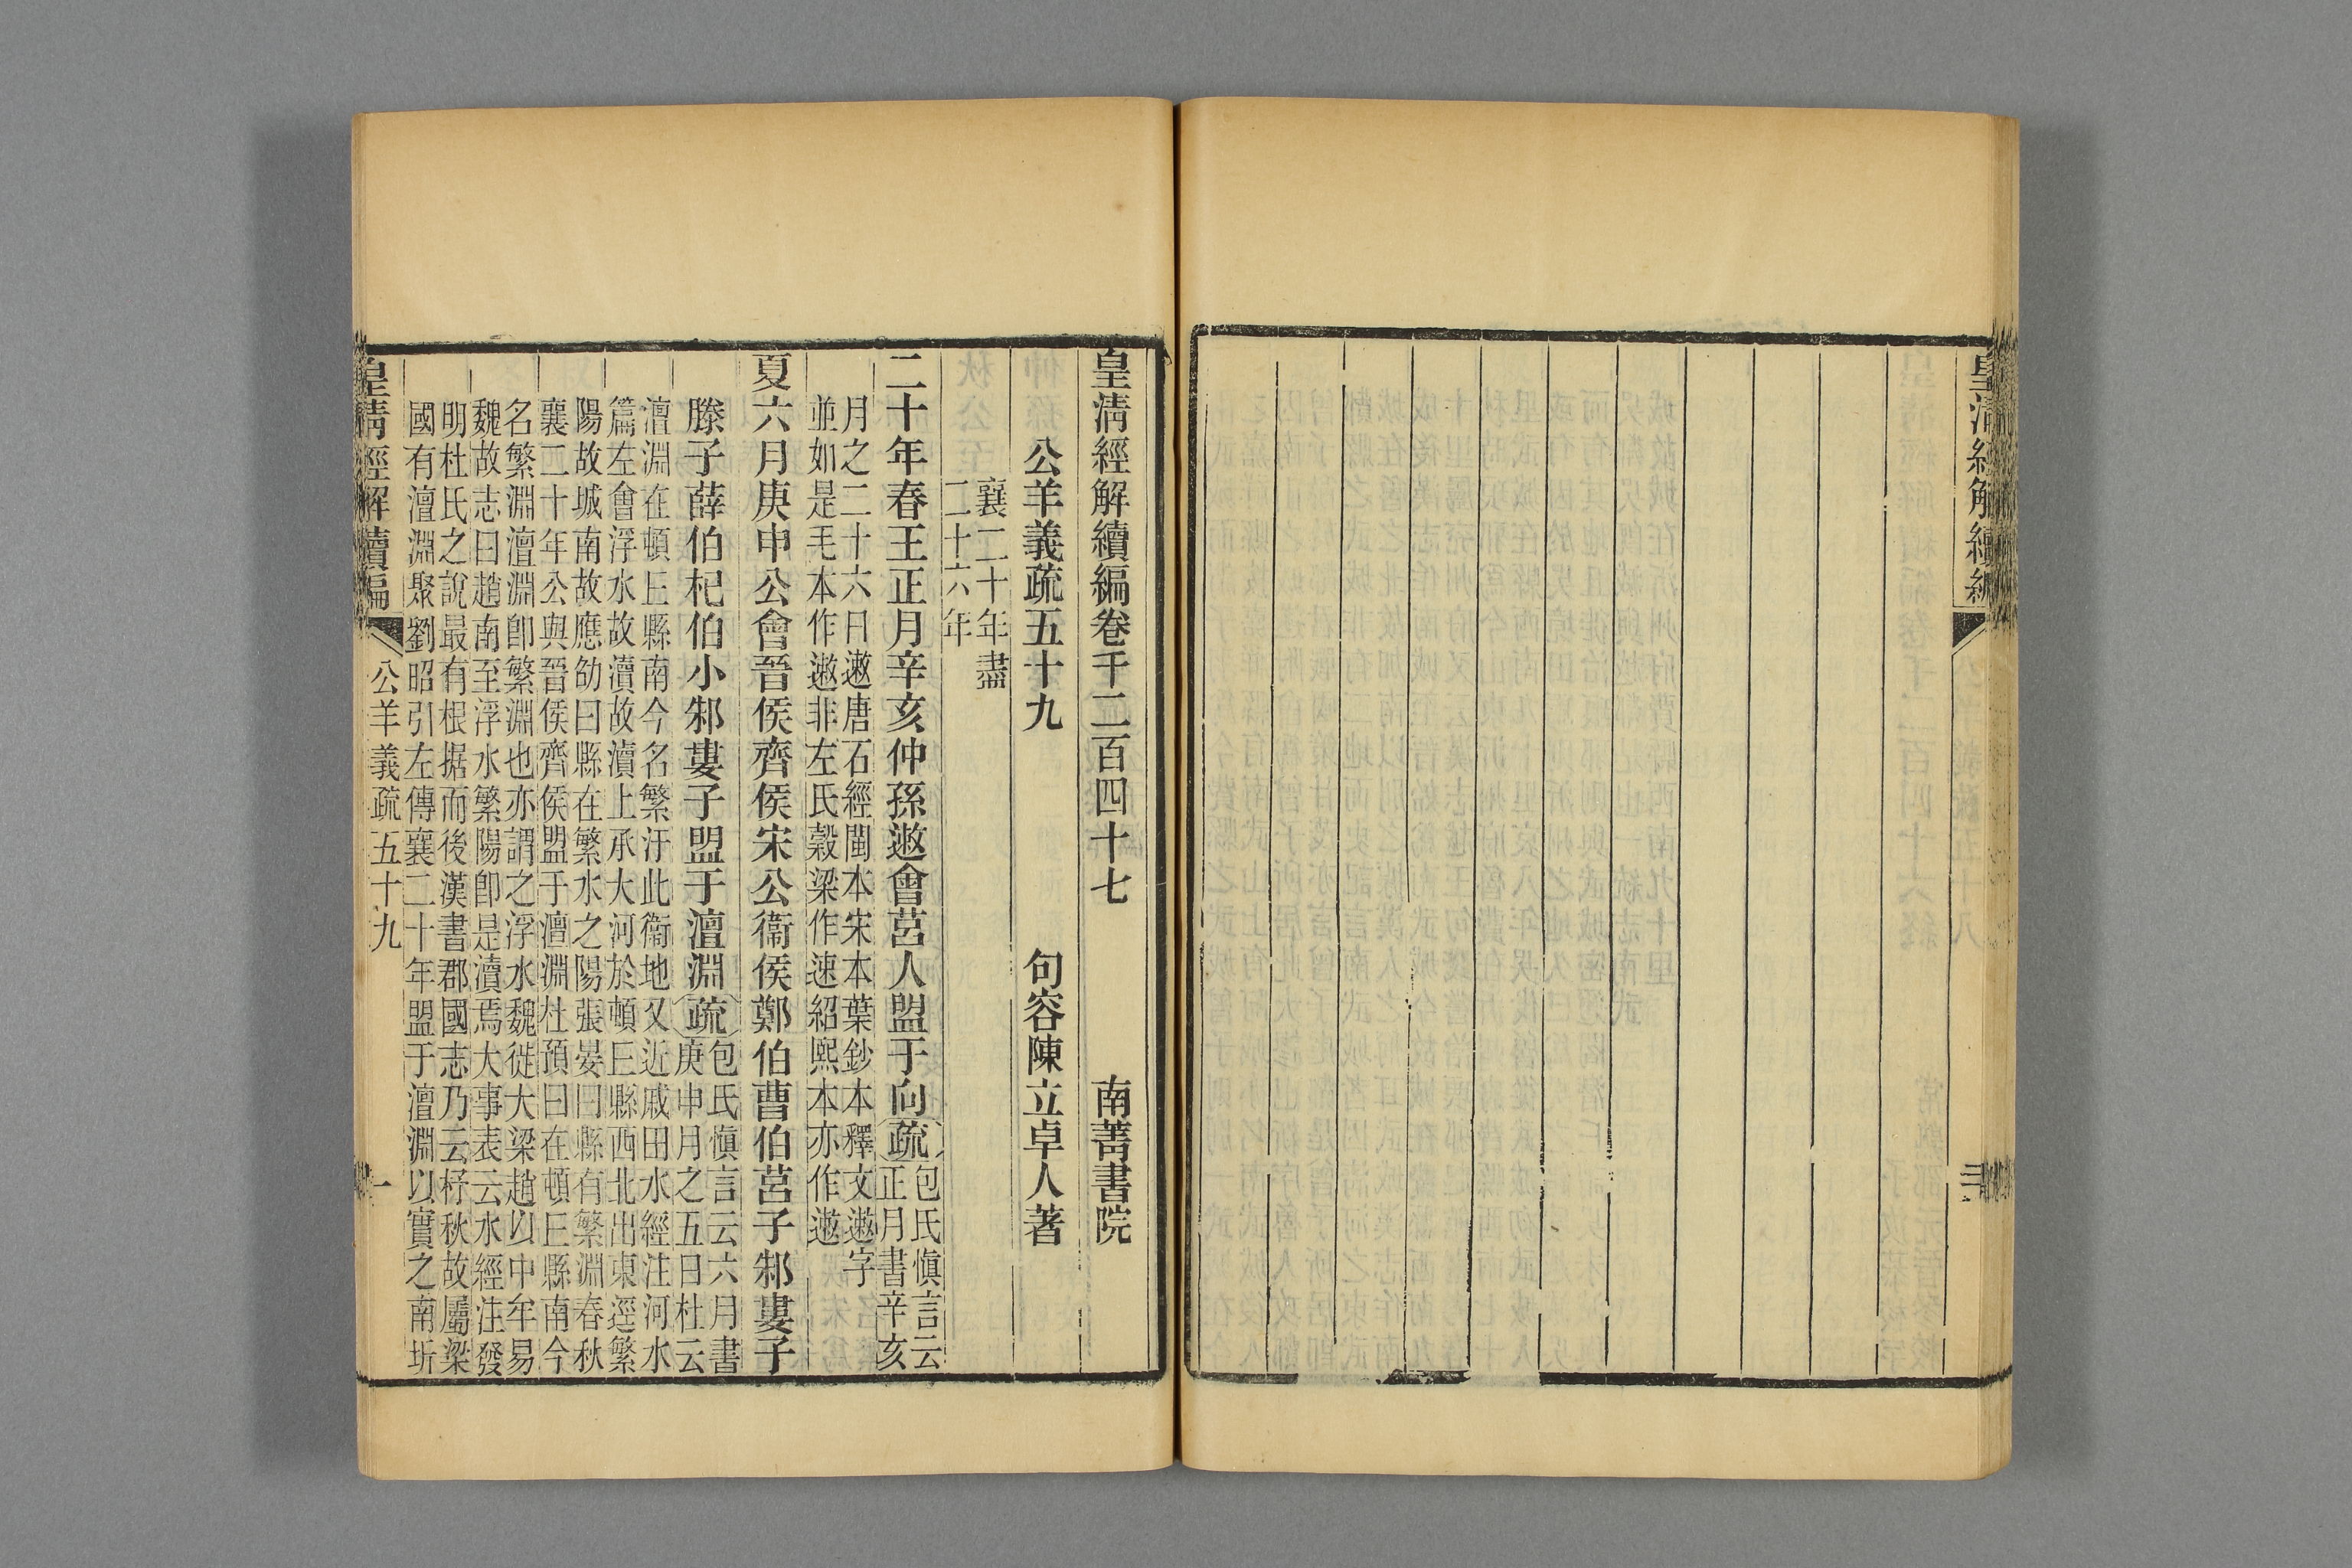 皇清經解續編
三
皇清經解續編卷千二百四十七　南菁書院
公羊義疏五十九　句容陳立卓人著
襄二十年盡
二十六年
二十年春王正月辛亥仲孫遬會莒人盟于向疏
包氏愼言云
正月書辛亥
月之二十六日遬唐石經閩本宋本葉鈔本釋文遬字
並如是毛本作遫非左氏穀梁作速紹熙本亦作遬
夏六月庚申公會晉侯齊侯宋公衞侯鄭伯曹伯莒子邾婁子
滕子薛伯杞伯小邾婁子盟于澶淵疏
包氏愼言云六月書
庚申月之五日杜云
澶淵在頓丘縣南今名繁汙此衞地又近戚田水經注河水
篇左會浮水故瀆故瀆上承大河於頓丘縣西北出東逕繁
陽故城南故應劭曰縣在繁水之陽張晏曰縣有繁淵春秋
襄二十年公與晉侯齊侯盟于澶淵杜預曰在頓丘縣南今
名繁淵澶淵卽繁淵也亦謂之浮水魏徙大梁趙以中牟易
魏故志曰趙南至浮水繁陽卽是瀆焉大事表云水經注發
明杜氏之說最有根据而後漢書郡國志乃云杼秋故屬梁
國有澶淵聚劉昭引左傳襄二十年盟于澶淵以實之南圻
皇清經解續編　公羊義疏五十九　一